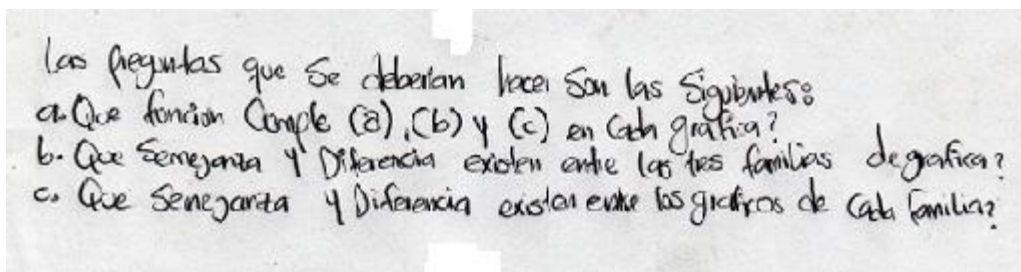 Las preguntas que se deberian hacer son las siguientes:
a. Que función Cumple (a), (b) y (c) en Cada grafica?
b. Que Semejanza y Diferencia existen entre las tres familias de grafica?
c. Que Semejanza y Diferencia existen entre los graficos de Cada familia?